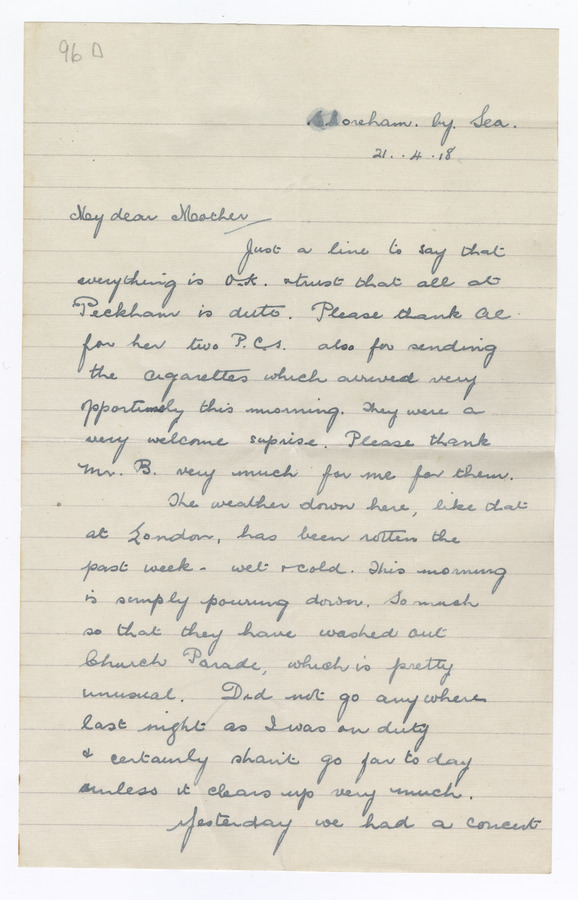 96 D
Shoreham. by. Sea.
21. . 4 . 18
My dear Mother
Just a line to say that
everything is O.K. & trust that all at
Peckham is ditto. Please thank Al
for her two P.C.s. also for sending
the cigarettes which arrived very
opportunely this morning. They were a
very welcome suprise. Please thank
Mr. B. very much for me for them.
The weather down here, like that
at London, has been rotten the
past week - wet & cold. This morning
is simply pouring down. So much
so that they have washed out
Church Parade, which is pretty
unusual. Did not go anywhere
last night as I was on duty
& certainly shan't go far to day
unless it clears up very much.
Yesterday we had a concert